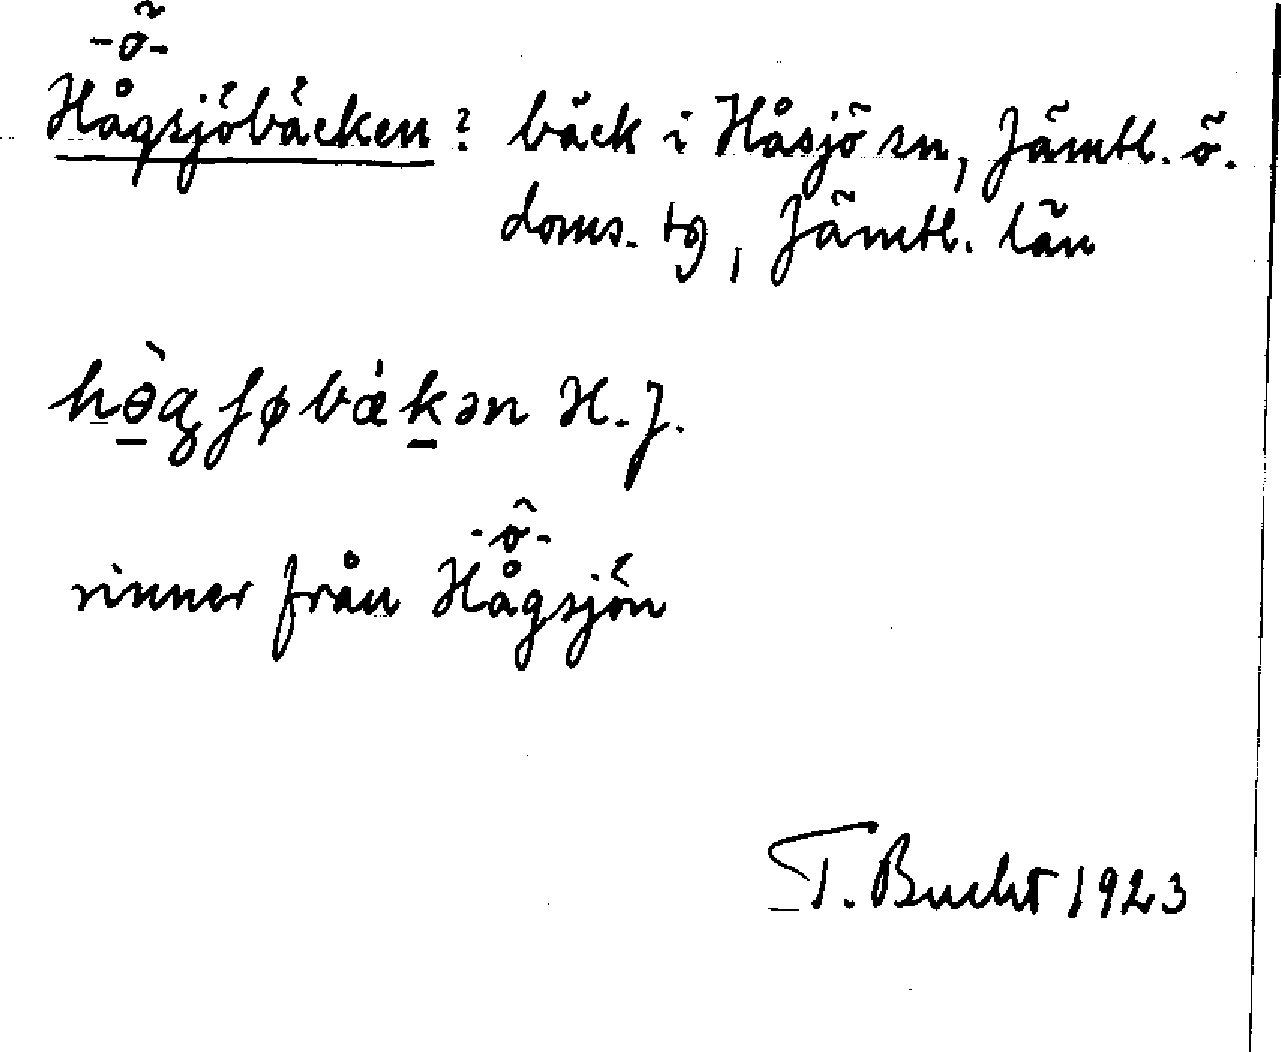 -ö-
Hågsjöbäcken? bäck i Håsjö sn, Jämtl. ö.
doms. tg, Jämtl. län
hɵ̀gʃøbákən H. J.
-ö-
rinner från Hågsjön
T. Bucht 1923